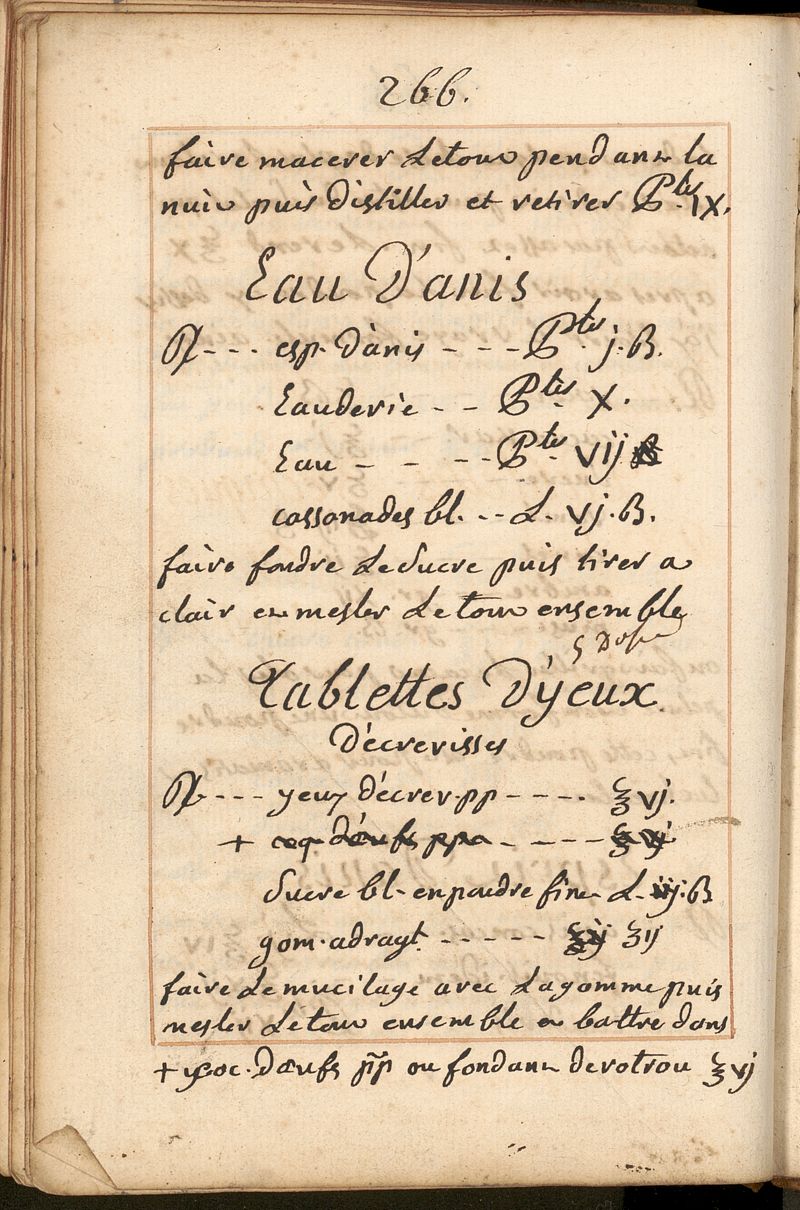 266.
faire macerer Letout pendant la
nuit puis distiller et retirer Ptes IX.
Eau D'anis
℞ --- esp. D'anis --- Ptes. j. ß.
Eauderie -- Ptes. X.
Eau - - -- Ptes. Vij
cassonades bl. -- L. Vj. ß.
faire fondre Lesucre puis tirer a
clair et mesler Letout ensemble
Tablettes D'yeux
D'écrevisses
℞ --- yeux d'écrev. pp ---- ℥ vj.
+ coq d'oeufs ppa - --- ℥ vj
sucre bl. en poudre fine L. iij. ß
gom. adragt. ----- ʒij
faire Le mucilage avec La gomme puis
mesler Letout ensemble et battre dans
+ D'oeufs pp ou fondant derotrou ℥ vj